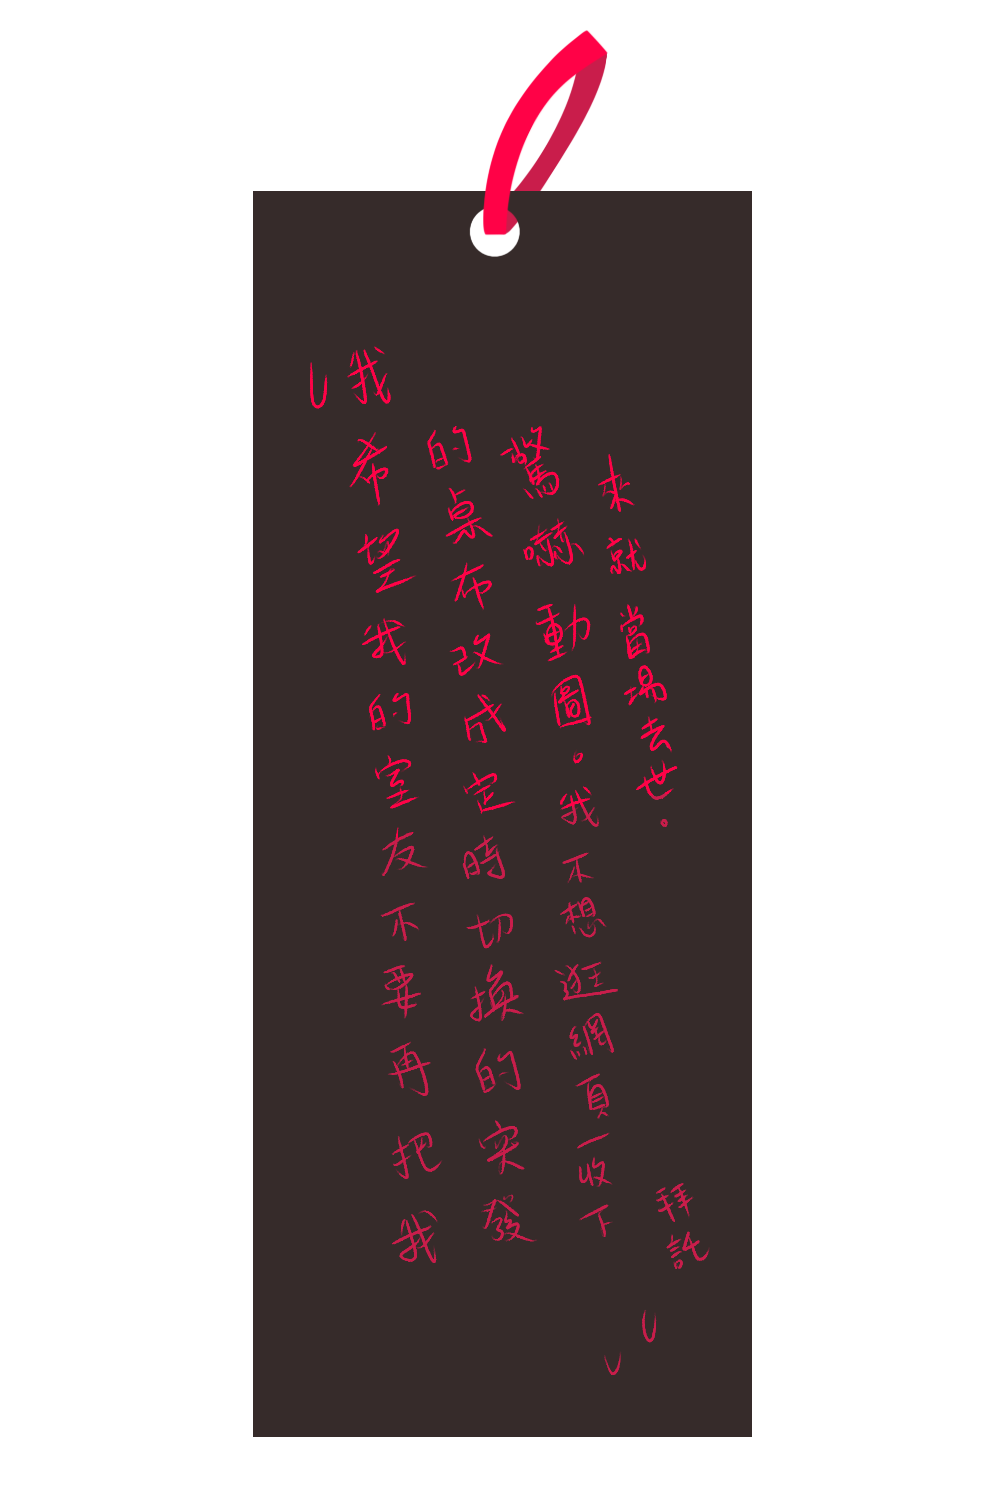 我希望我的室友不要再把我
的桌布改成定時切換的突發
驚嚇動圖。我不想逛網頁一收下
來就當場去世。
拜託